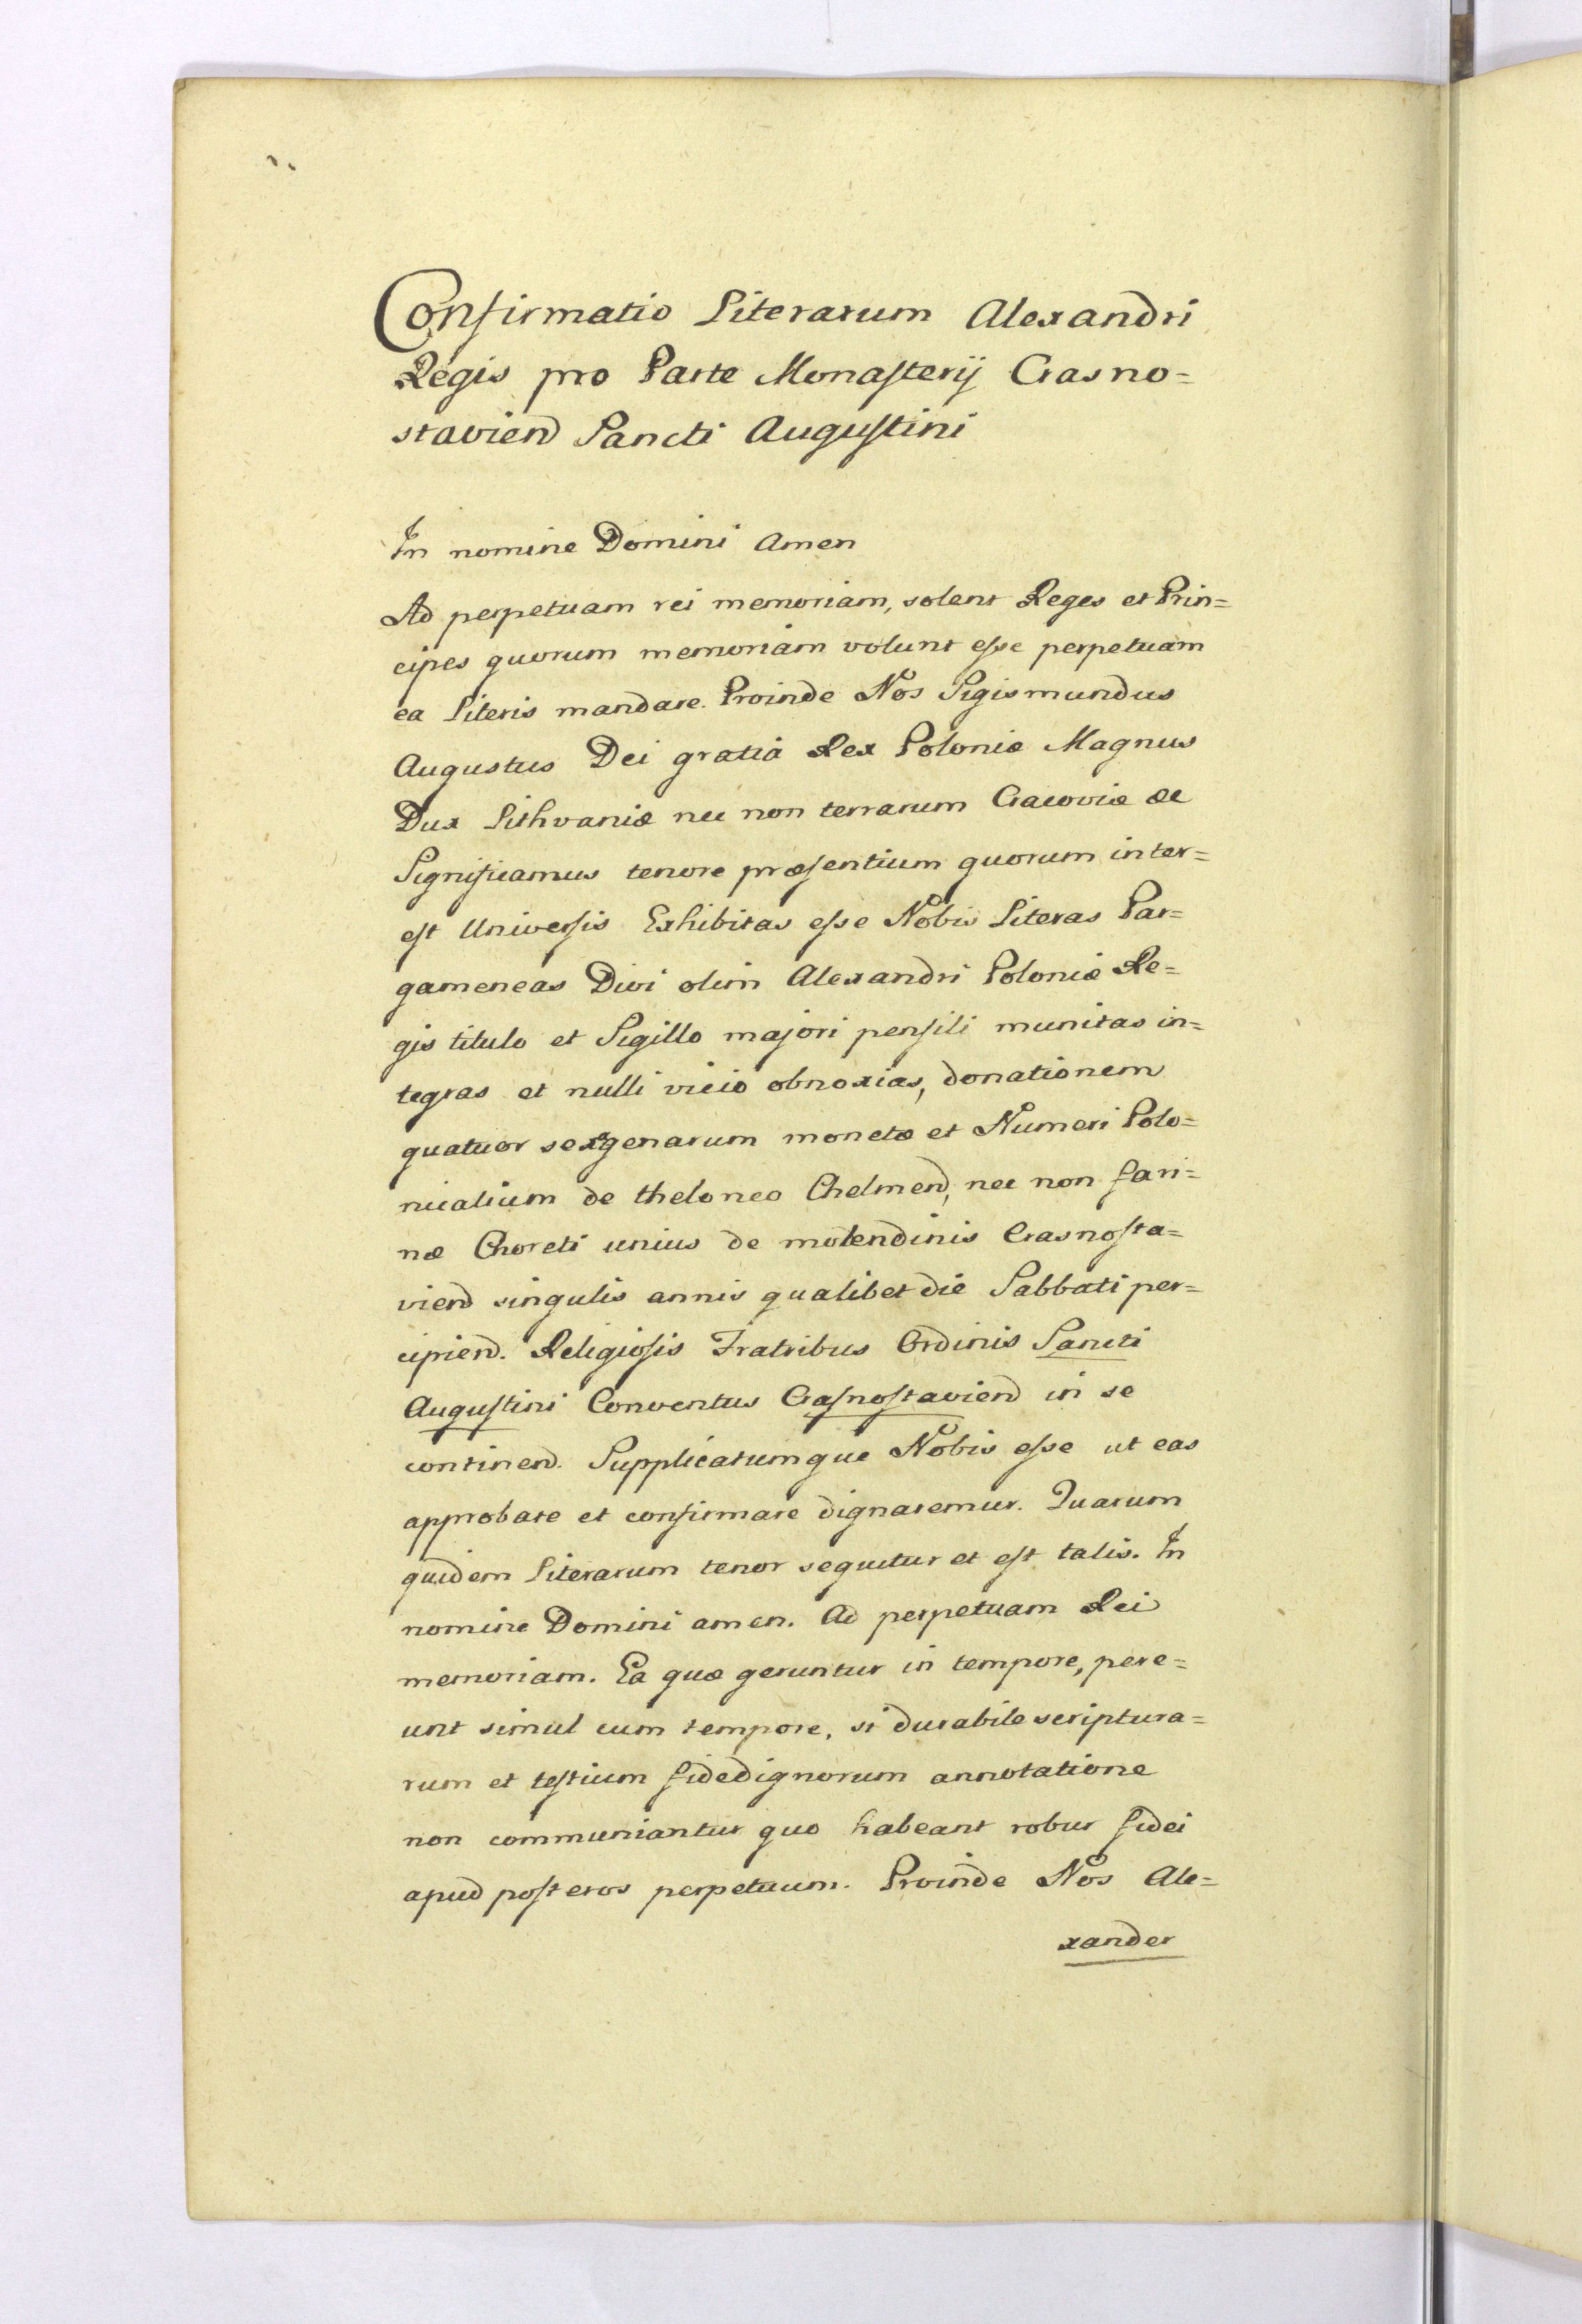 Confirmatio Literarum Alexandri
Regis pro Parte Monasterij Crasno=
stavien Sancti Augustini
In nomine Domini Amen
Ad perpetuam rei memoriam, solent Reges et Prin=
cipes quorum memoriam volunt esse perpetuam
ea Literis mandare. Proinde Nos Sigismundus
Augustus Dei gratia Rex Poloniæ Magnus
Dux Lithvaniæ nec non terrarum Cracoviæ &c
Significamus tenore præsentium quorum inter=
est Universis Exhibitas esse Nobis Literas Par=
gameneas Divi olim Alexandri Poloniæ Re=
gis titulo et Sigillo majori pensili munitas in=
tegras et nulli vicio obnoxias, donationem
quatuor sexgenarum monetæ et Numeri Polo=
nicalium de theloneo Chelmen, nec non fari=
næ Choreti unius de molendinis Crasnosta=
vien singulis annis qualibet die Sabbati per=
cipien. Religiosis Fratribus Ordinis Sancti
Augustini Conventus Crasnostavien in se
continen. Supplicatumque Nobis esse ut eas
approbare et confirmare dignaremur. Quarum
quidem Literarum tenor sequitur et est talis. In
nomine Domini amen. Ad perpetuam Rei
memoriam. Ea quæ geruntur in tempore, pere=
unt simul cum tempore, si durabile scriptura=
rum et testium fidedignorum annotatione
non communiantur quo habeant robur fidei
apud posteros perpetuum. Proinde Nos Ale=
xander